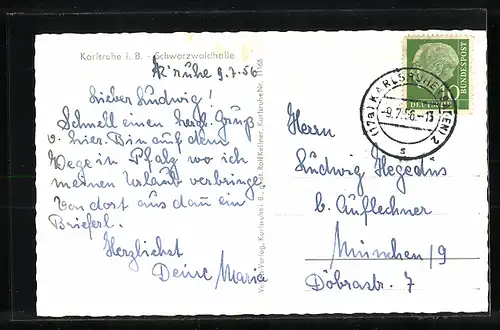 Karlsruhe i. B. Schwarzwaldhalle
K'ruhe 9.7.56
Lieber Ludwig!
Schnell einen herzl. Gruß
v. hier. Bin auf dem
Wege in Pfalz wo ich
meinen Urlaub verbringe
Von dort aus dann ein
Brieferl.
Herzlichst
Deine Maria
Verlag, Karlsruhe i. B., Phot. Rolf Kellner, Karlsruhe Nr. 1165
(17a) KARLSRUHE 2
-9.7.56-13
s
DEUTSCHE BUNDESPOST
Herrn
Ludwig Hegedus
b. Auflechner
München/9
Döbrastr. 7